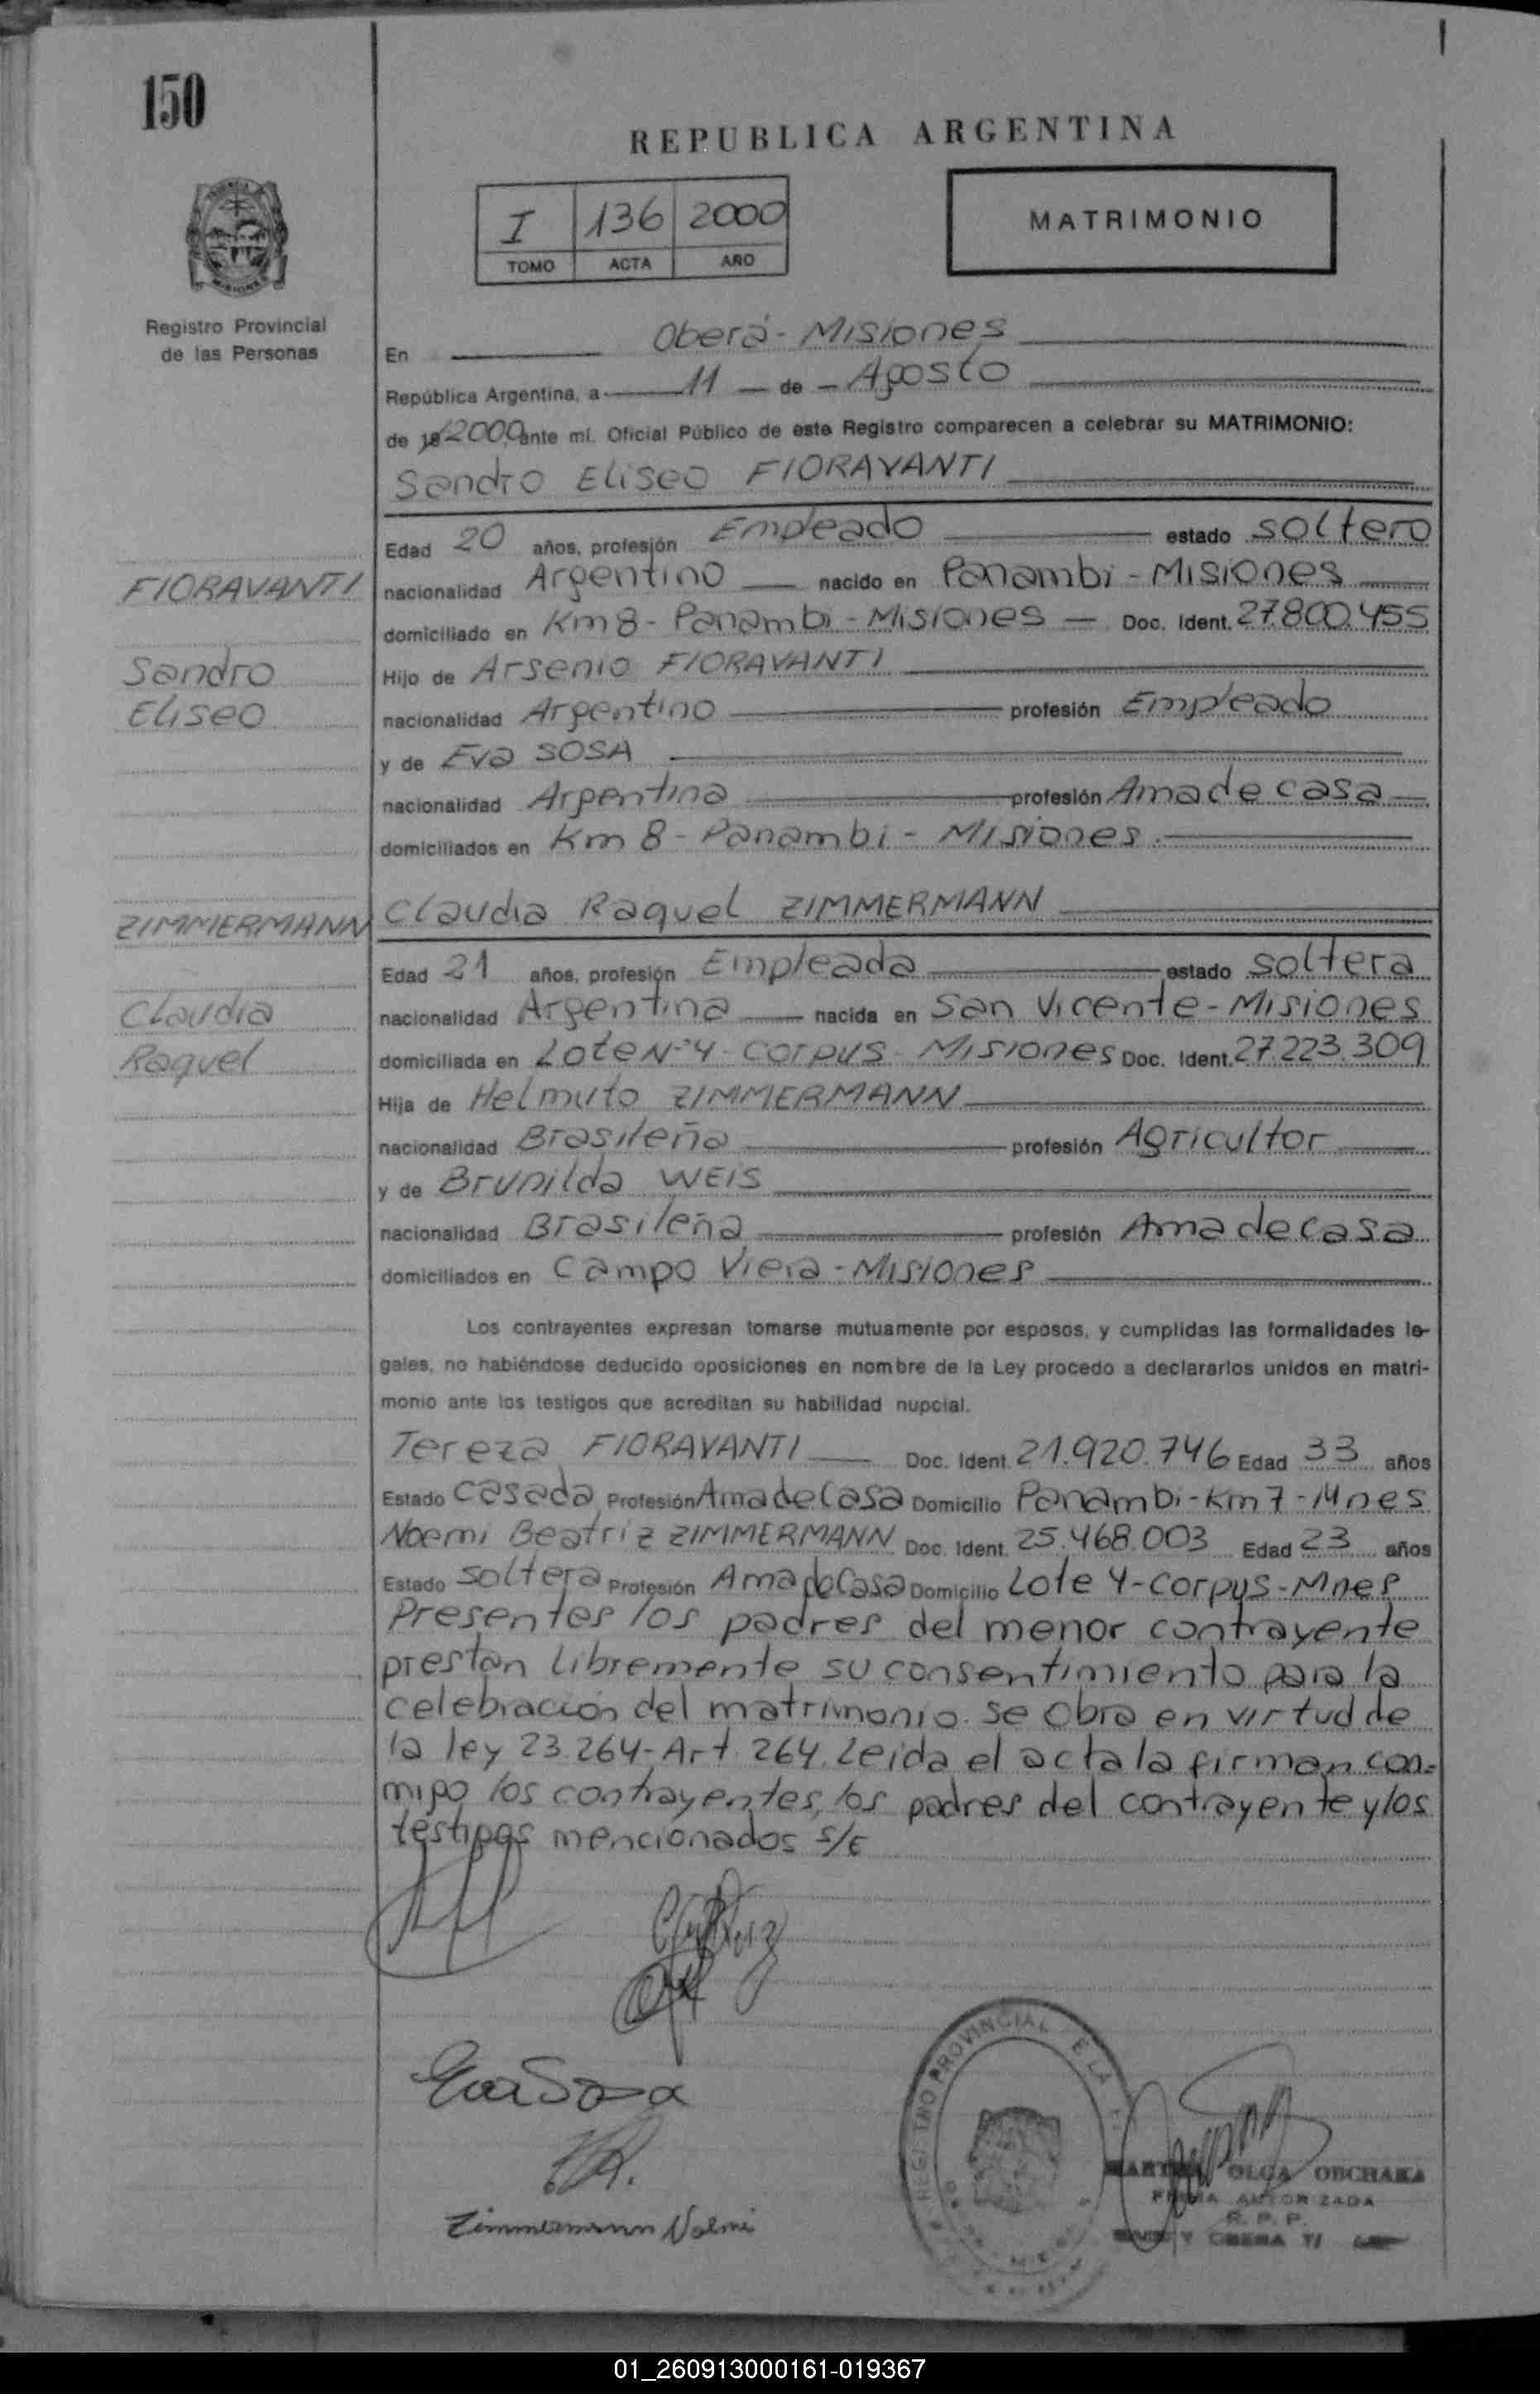 150
REPUBLICA ARGENTINA
I 136 2000
TOMO ACTA AÑO
MATRIMONIO
Registro Provincial
de las Personas
En Oberá - Misiones
República Argentina, a 11 de Agosto
de 19 2000 ante mí. Oficial Público de este Registro comparecen a celebrar su MATRIMONIO:
Sandro Eliseo FIORAVANTI
Edad 20 años, profesión Empleado estado soltero
FIORAVANTI
nacionalidad Argentino nacido en Panambi - Misiones
domiciliado en Km 8 - Panambi - Misiones Doc. Ident. 27.800.455
Sandro
Hijo de Arsenio FIORAVANTI
Eliseo
nacionalidad Argentino profesión Empleado
y de Eva SOSA
nacionalidad Argentina profesión Ama de casa
domiciliados en Km 8 - Panambi - Misiones.
ZIMMERMANN
Claudia Raquel ZIMMERMANN
Edad 21 años, profesión Empleada estado soltera
Claudia
nacionalidad Argentina nacida en San Vicente - Misiones
Raquel
domiciliada en Lote Nº 4 - Corpus - Misiones Doc. Ident. 27.223.309
Hija de Helmuto ZIMMERMANN
nacionalidad Brasileña profesión Agricultor
y de Brunilda WEIS
nacionalidad Brasileña profesión Ama de casa
domiciliados en Campo Viera - Misiones
Los contrayentes expresan tomarse mutuamente por esposos, y cumplidas las formalidades le-
gales, no habiéndose deducido oposiciones en nombre de la Ley procedo a declararlos unidos en matri-
monio ante los testigos que acreditan su habilidad nupcial.
Tereza FIORAVANTI Doc. Ident. 21.920.746 Edad 33 años
Estado casada Profesión Ama de Casa Domicilio Panambi - Km 7 - Mnes
Noemi Beatriz ZIMMERMANN Doc. Ident. 25.468.003 Edad 23 años
Estado soltera Profesión Ama de Casa Domicilio Lote 4 - Corpus - Mnes
Presentes los padres del menor contrayente
prestan libremente su consentimiento para la
celebración del matrimonio. Se obra en virtud de
la ley 23.264 - Art. 264. Leida el acta la firman con-
migo los contrayentes, los padres del contrayente y los
testigos mencionados s/E
Eva Sosa
Zimmermann Noemi
REGISTRO PROVINCIAL DE LA
OLGA OBCHAKA
FIRMA AUTORIZADA
R. P. P.
OBERA
01_260913000161-019367